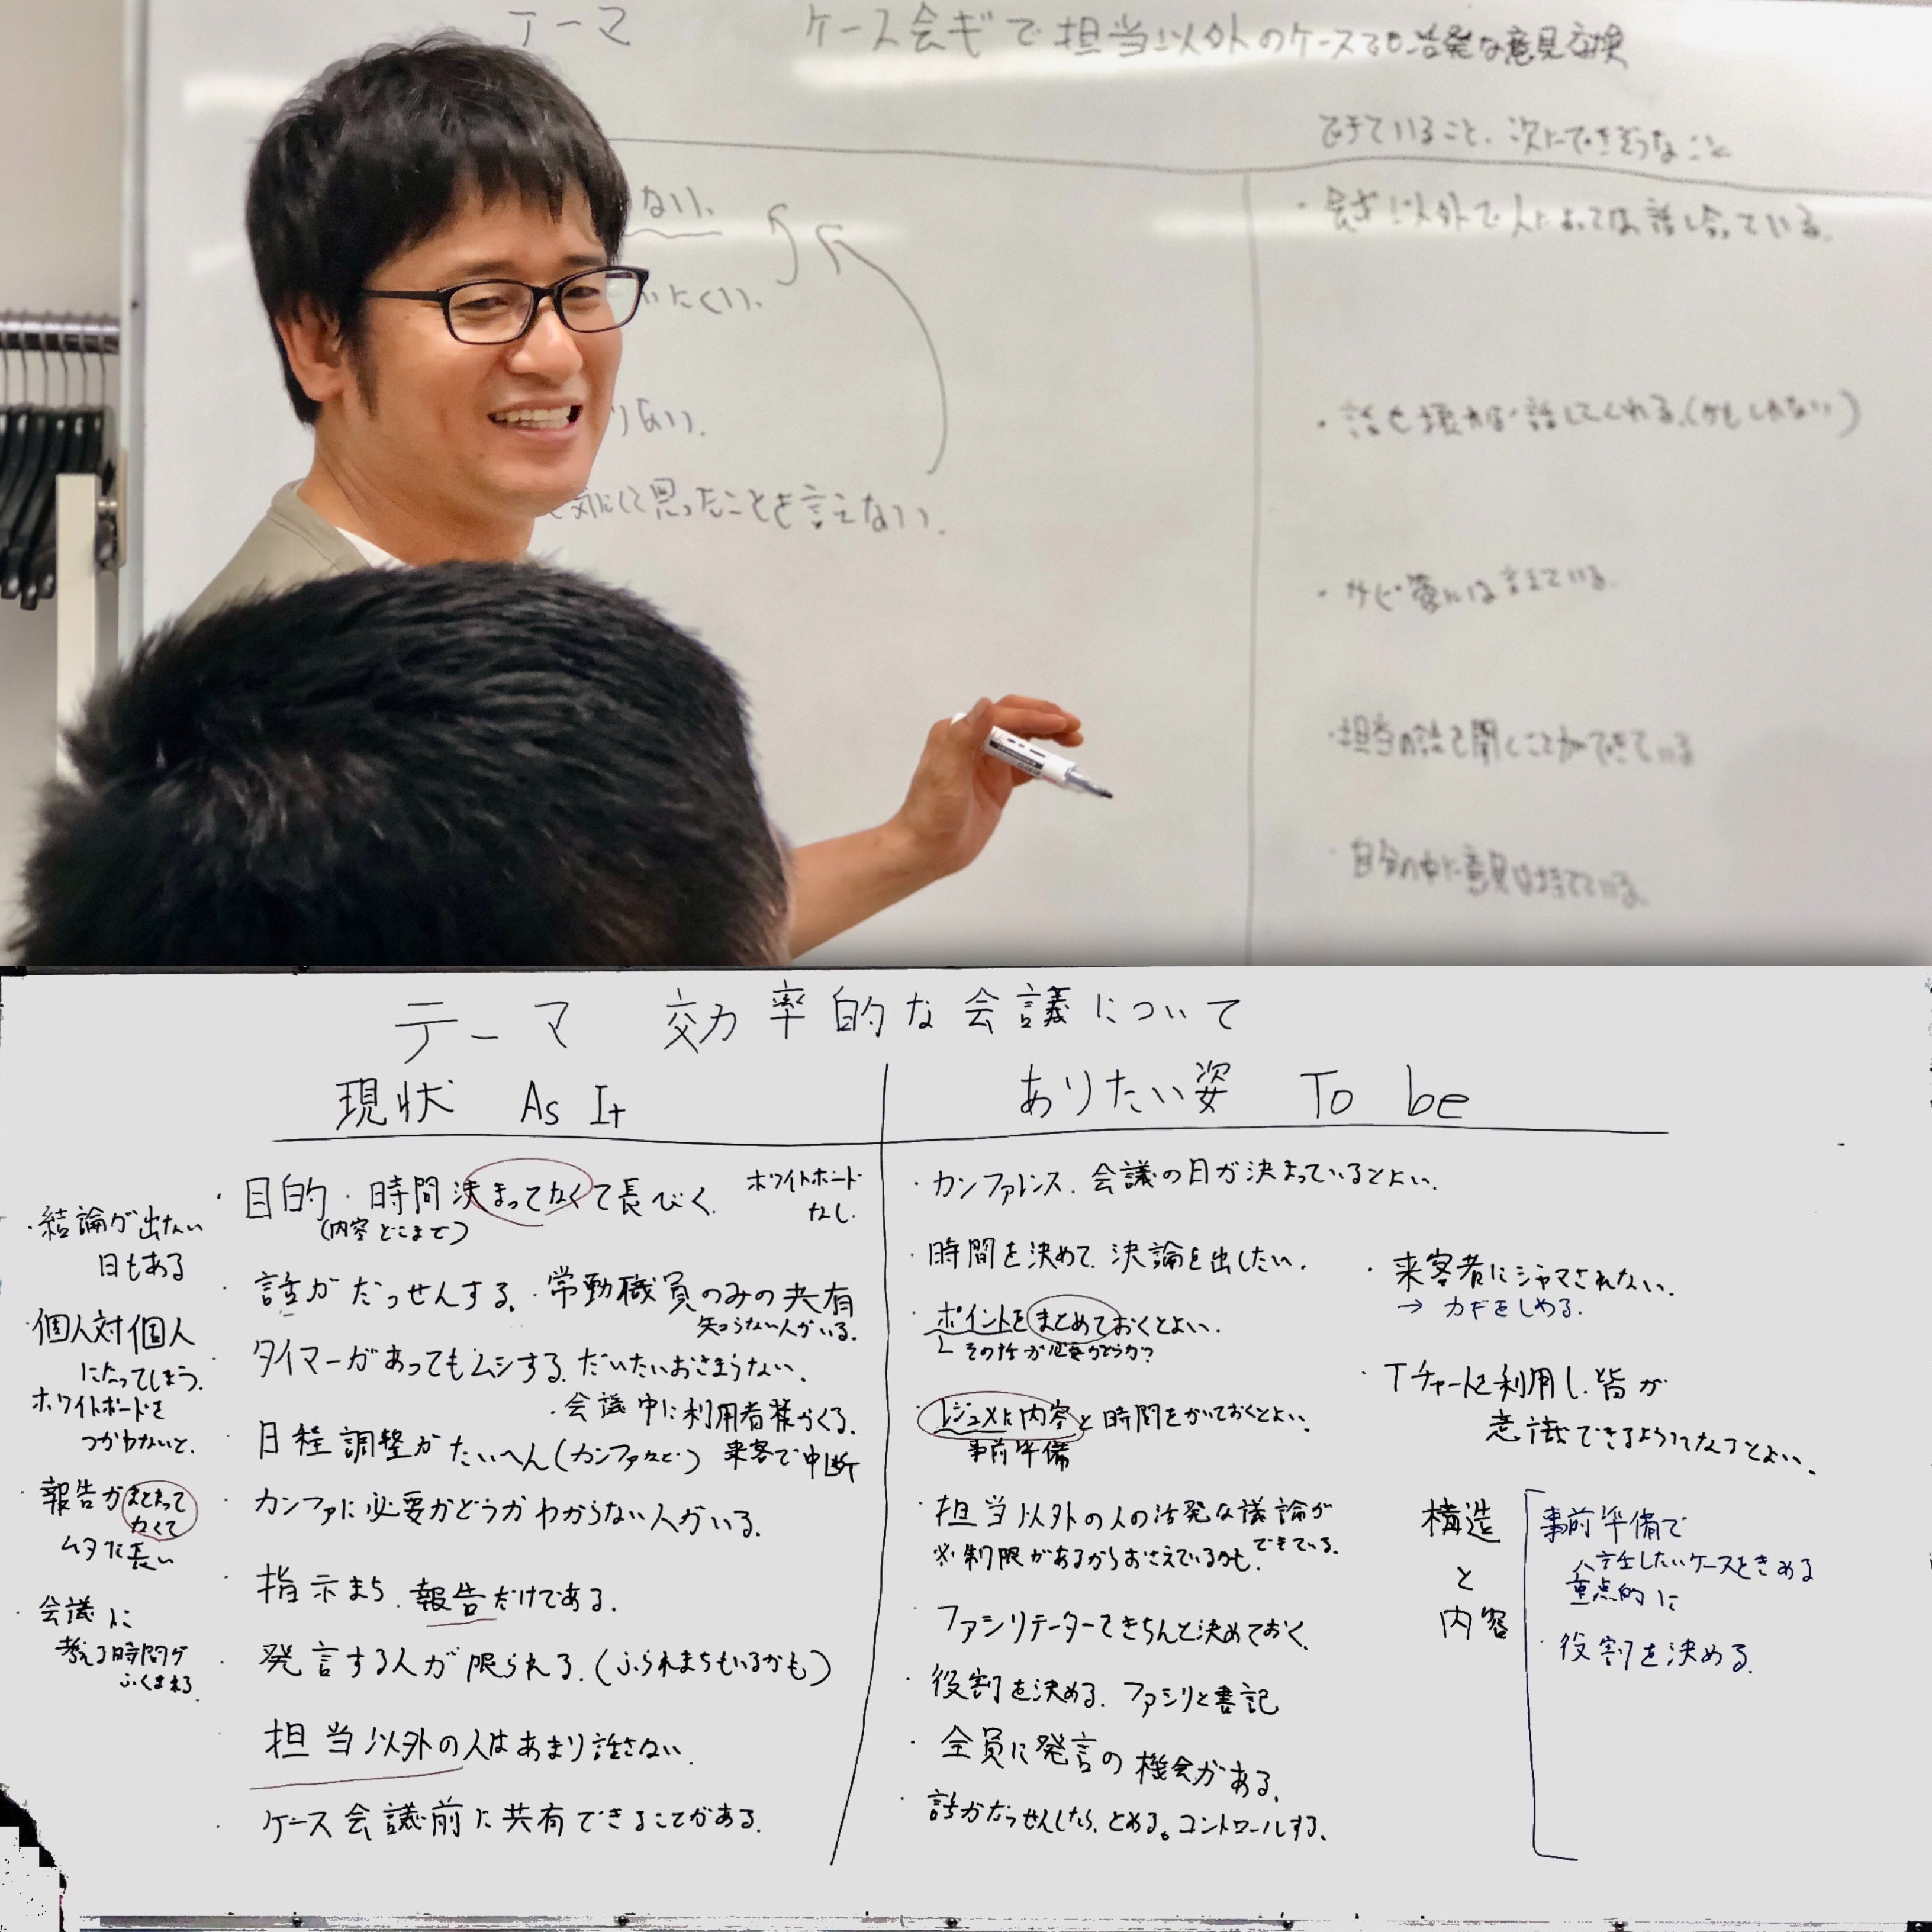 テーマ ケース会ギで担当以外のケースでも活発な意見交換
できていること、次にできそうなこと
ない、
いにくい、
りない、
気にして思ったことを言えない、
・会ギ以外で人によっては話し合っている。
・話を振れば話してくれる。(かもしれない)
・サビ管には言えている。
・担当の話を聞くことができている
・自分の中に意見は持てている。
テーマ 効率的な会議について
現状 As It
・目的・時間決まってなくて長びく。
(内容どこまで)
ホワイトボード
なし。
・話がだっせんする。
・常勤職員のみの共有
知らない人がいる。
・タイマーがあってもムシする。だいたいおさまらない、
・会議中に利用者様がくる。
来客で中断
・日程調整がたいへん(カンファなど)
・カンファに必要かどうかわからない人がいる。
・指示まち、報告だけである。
・発言する人が限られる。(ふられまちもいるかも)
・担当以外の人はあまり話さない、
・ケース会議前に共有できることがある。
・結論が出ない
日もある
・個人対個人
になってしまう。
ホワイトボードを
つかわないと、
・報告がまとまって
なくて
ムダに長い
・会議に
考える時間が
ふくまれる
ありたい姿 To be
・カンファレンス、会議の日が決まっているとよい、
・時間を決めて、決論を出したい、
・ポイントをまとめておくとよい、
その件が必要かどうか?
・レジュメに内容と時間をかいておくとよい、
事前準備
・担当以外の人の活発な議論が
できている。
※制限があるからおさえているかも、
・ファシリテーターできちんと決めておく、
・役割を決める、ファシリと書記
・全員に発言の機会がある、
・話がだっせんしたら、とめる。コントロールする、
・来客者にジャマされない、
→ カギをしめる。
・Tチャートを利用し、皆が
意識できるようになるとよい、
構造
と
内容
事前準備で
ケースをきめる
重点的に
・役割を決める。